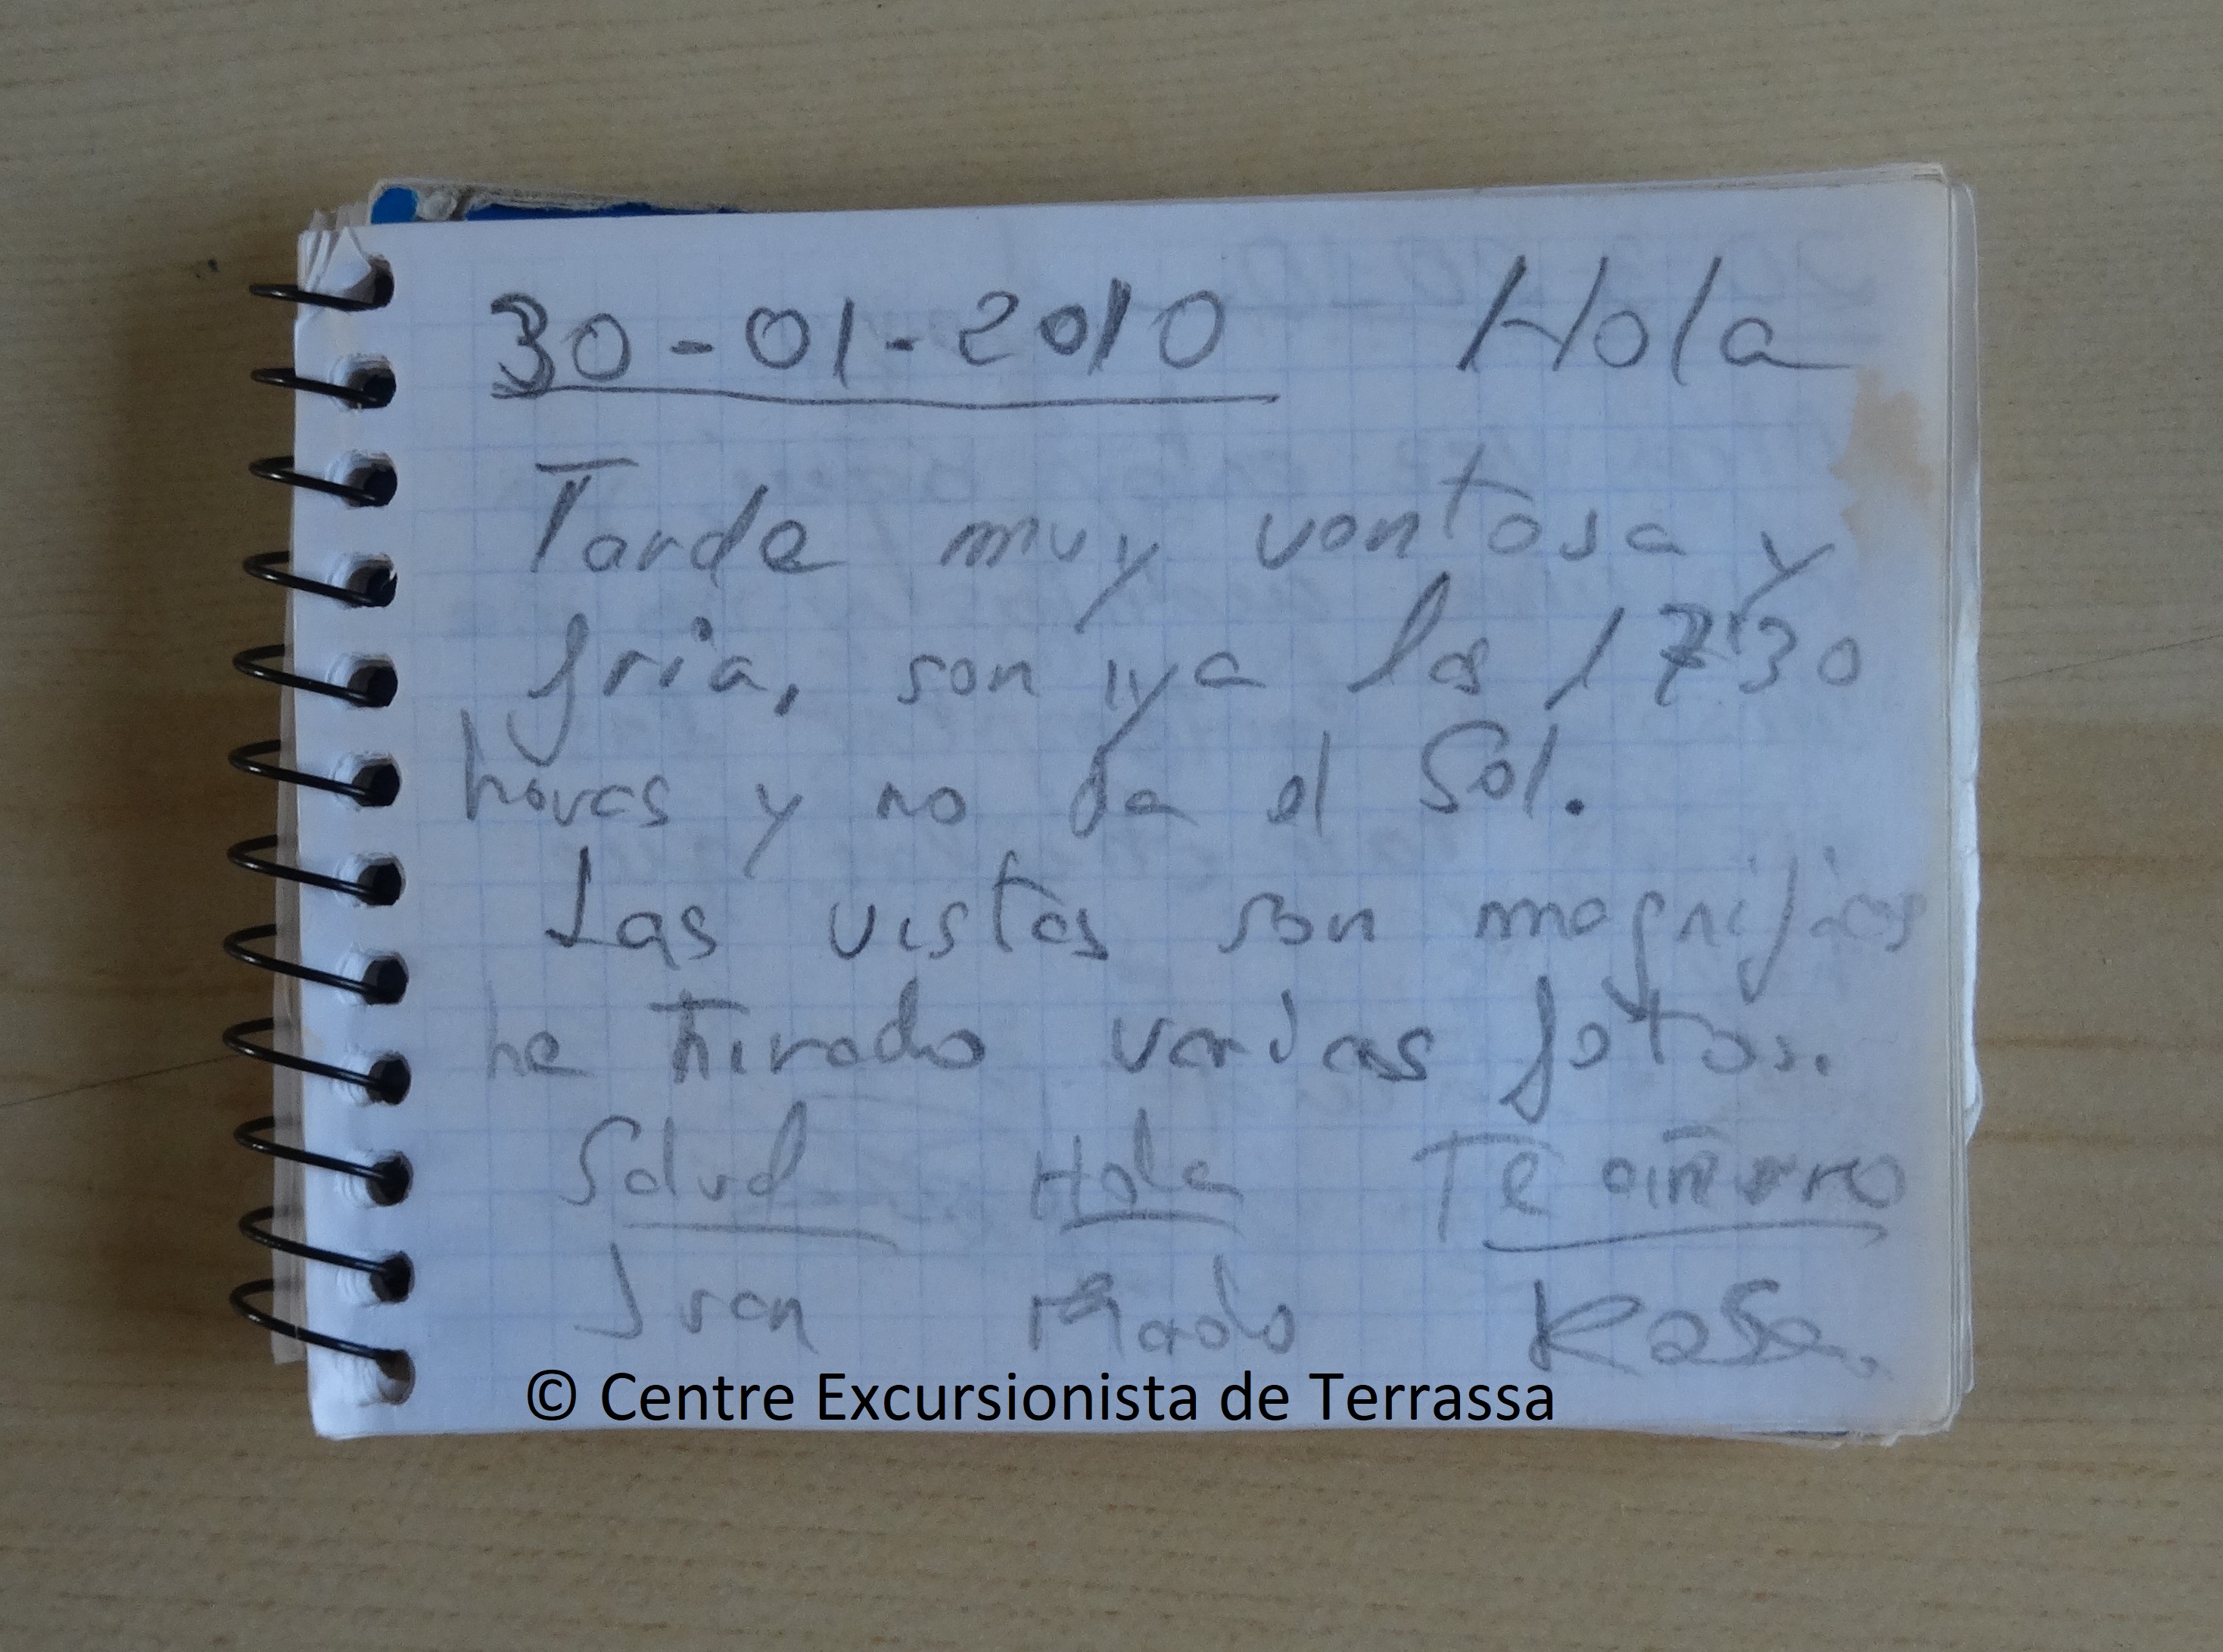 30-01-2010 Hola
Tarde muy ventosa y
fria, son ya las 17'30
horas y no da el Sol.
Las vistas son magnificas
he tirado varias fotos.
Salud Hola Te añoro
Juan Rosa.
© Centre Excursionista de Terrassa